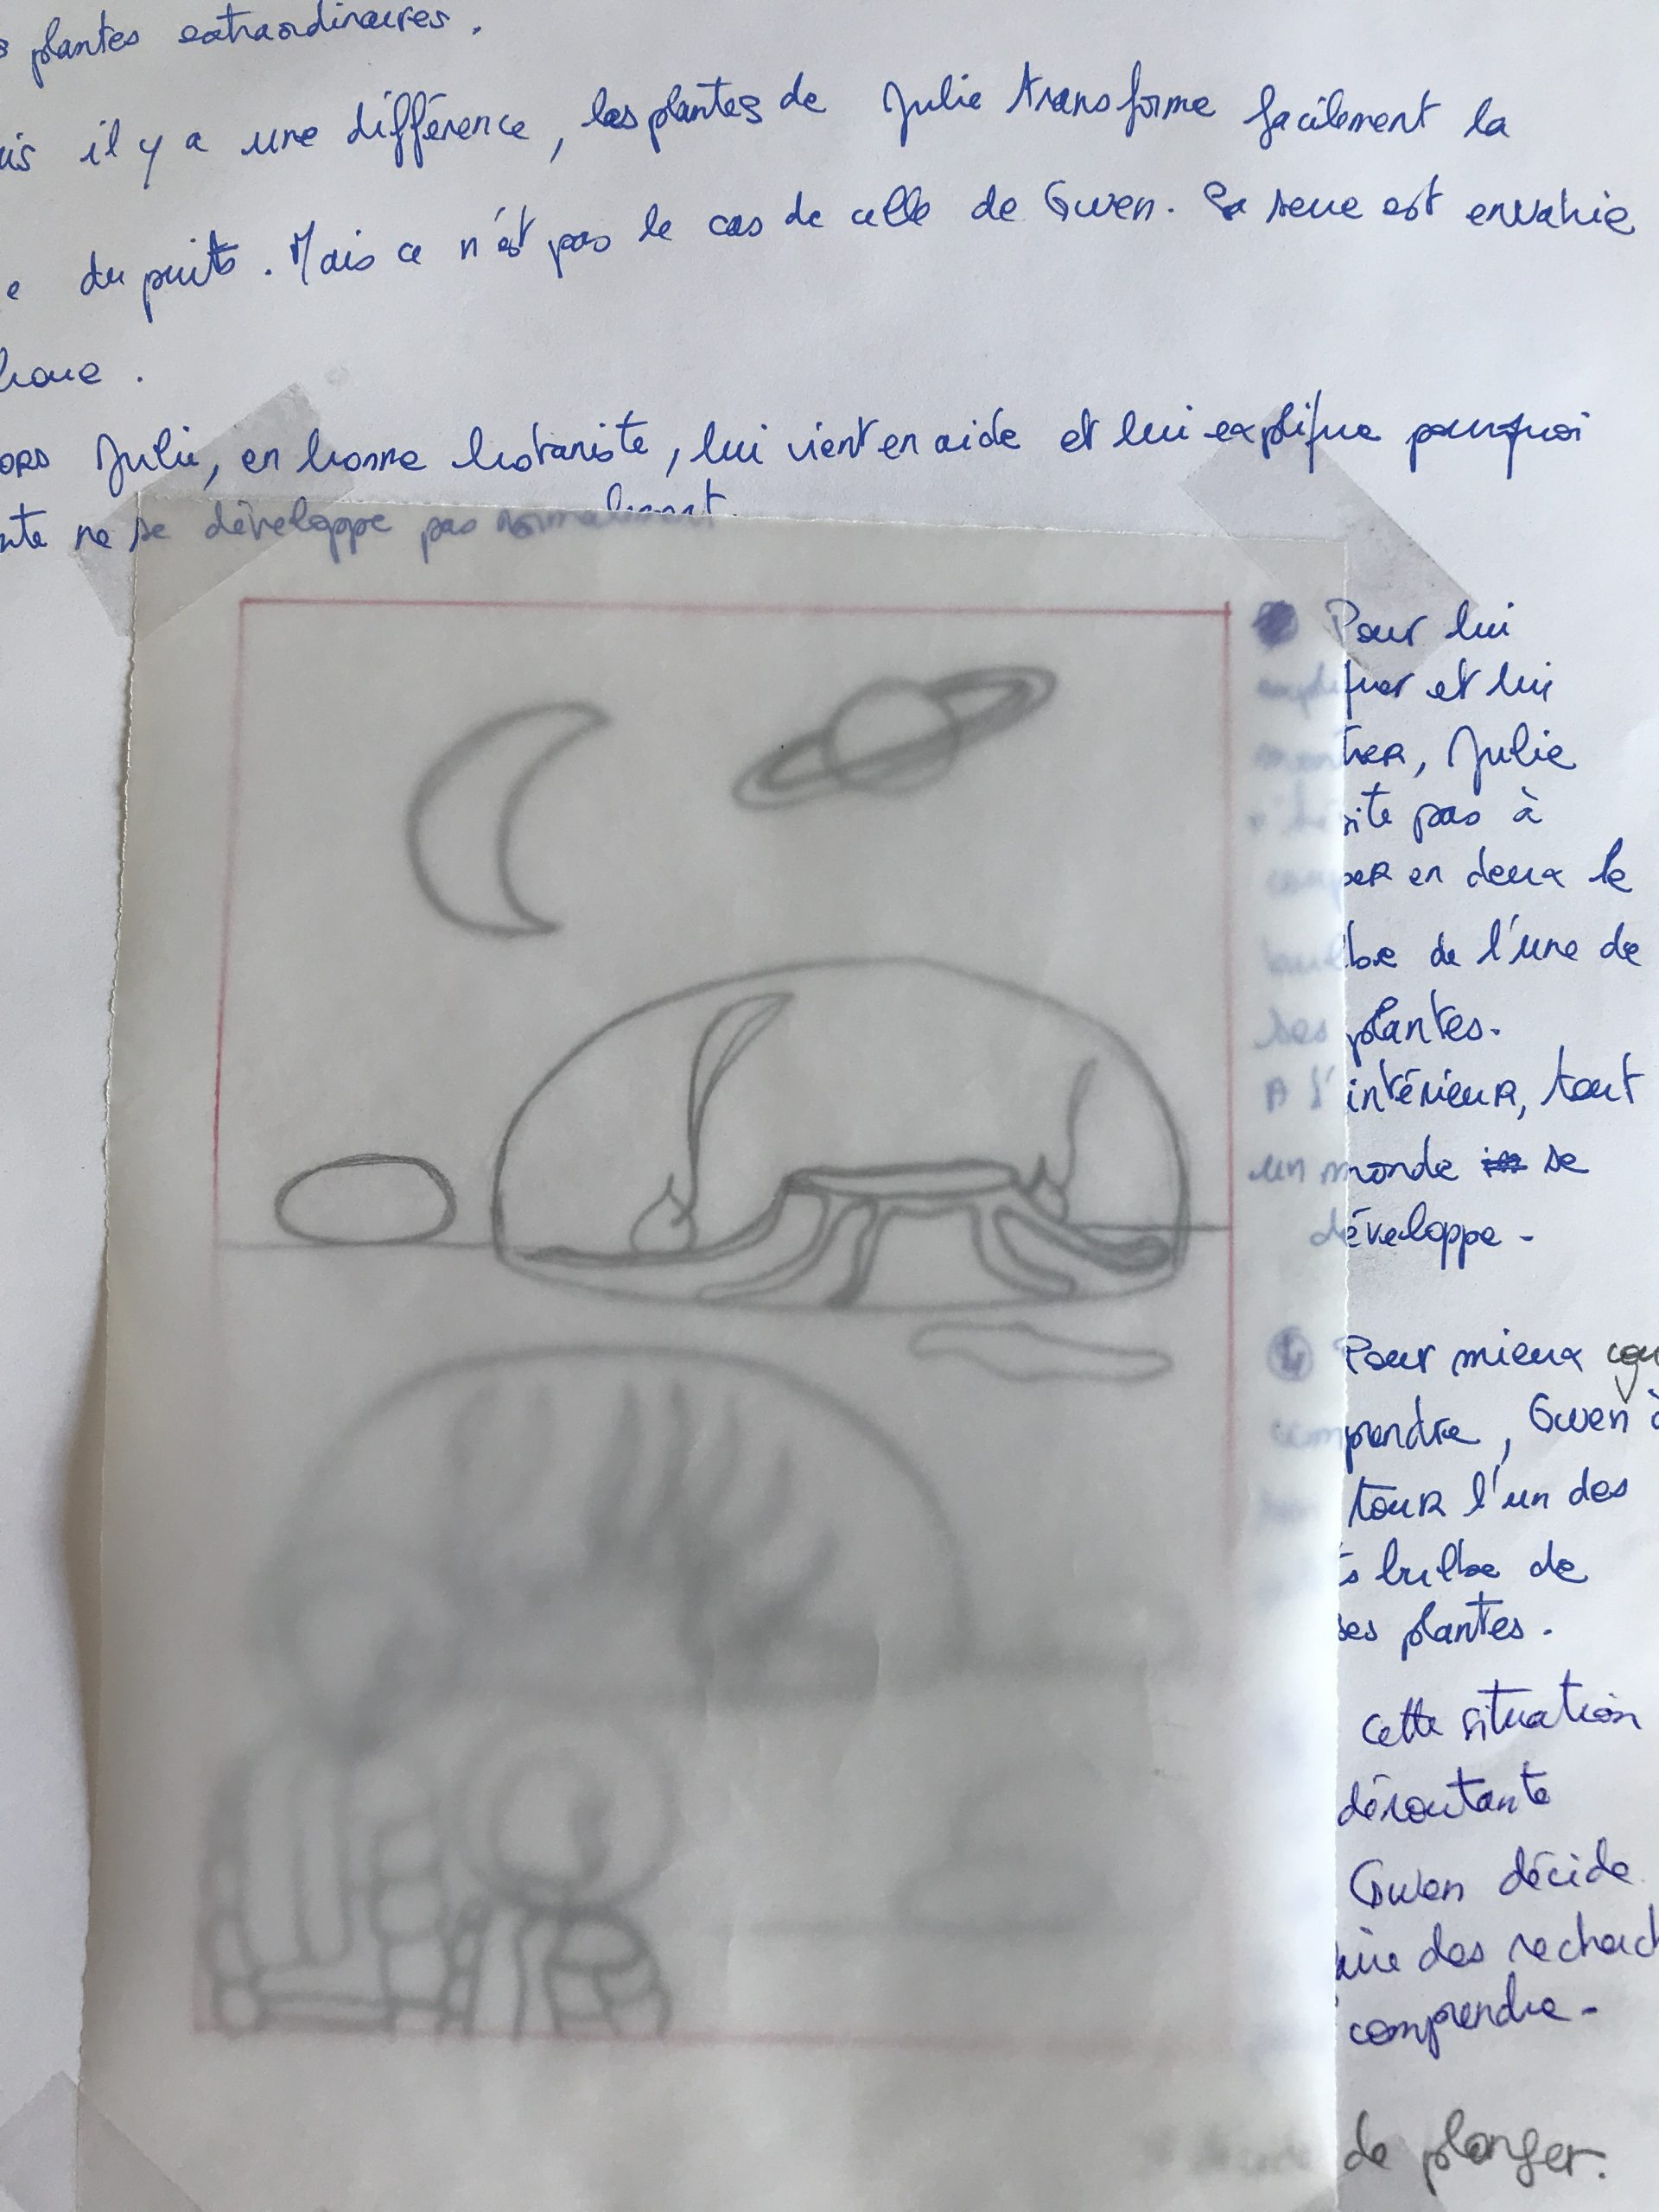 plantes extraordinaires.
is il y a une différence, les plantes de Julie transforme facilement la
e du puits. Mais ce n'est pas le cas de celle de Gwen. Sa seve est envahie
boue.
ors Julie, en bonne botaniste, lui vient en aide et lui explique pourquoi
nte ne se développe pas normalement.
Pour lui
expliquer et lui
montrer, Julie
n'hésite pas à
couper en deux le
bulbe de l'une de
ses plantes.
A l'intérieur, tout
un monde se
développe -
Pour mieux
comprendre, Gwen à
son tour l'un des
bulbe de
ses plantes.
cette situation
déroutante
Gwen décide
aire des recherch
comprendre -
de plonger.